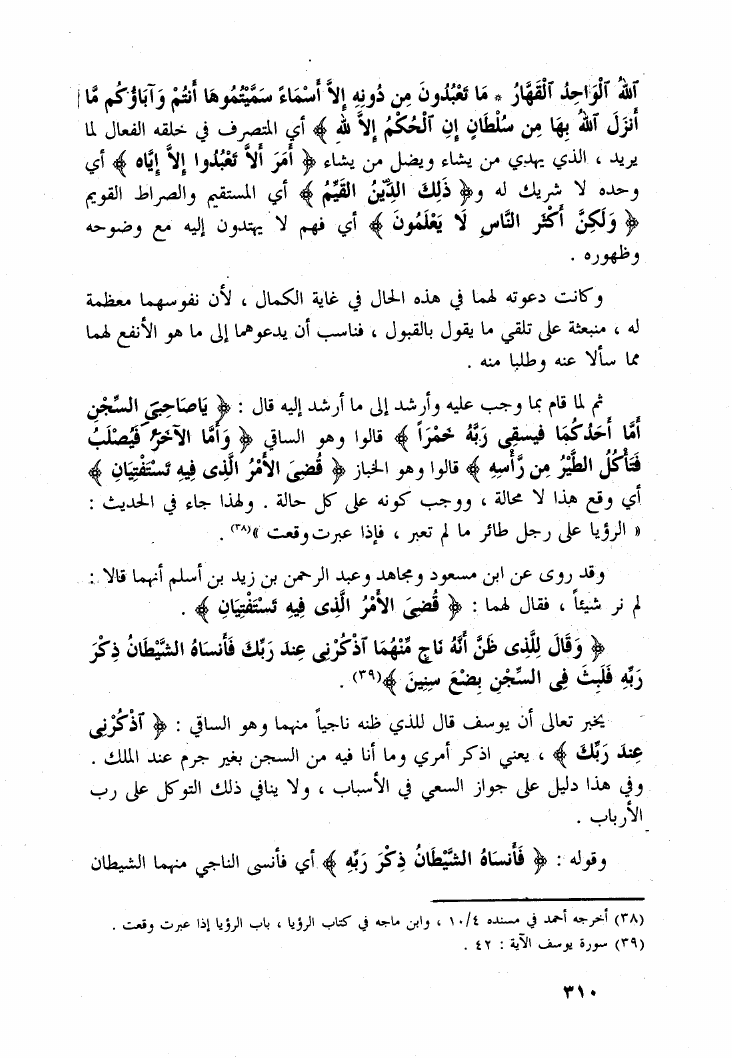 اَللهُ اَلْوَاحِدُ اَلْقَهَّارُ * مَا تَعْبُدُونَ مِن دُونِهِ إِلاَّ أَسْمَاءً سَمَّيْتُمُوهَا أَنتُمْ وَآبَاؤُكُم مَّا
أَنزَلَ اَللهُ بِهَا مِن سُلْطَانٍ إِنِ اَلْحُكْمُ إِلاَّ للهِ ﴾ أي المتصرف في خلقه الفعال لما
يريد ، الذي يهدي من يشاء ويضل من يشاء ﴿ أَمَرَ أَلاَّ تَعْبُدُوا إِلاَّ إِيَّاه ﴾ أي
وحده لا شريك له و﴿ ذَلِكَ الدِّينُ القَيِّمُ ﴾ أي المستقيم والصراط القويم
﴿ وَلَكِنَّ أَكْثَرَ النَّاسِ لَا يَعْلَمُونَ ﴾ أي فهم لا يهتدون إليه مع وضوحه
وظهوره .
وكانت دعوته لهما في هذه الحال في غاية الكمال ، لأن نفوسهما معظمة
له ، منبعثة على تلقي ما يقول بالقبول ، فناسب أن يدعوهما إلى ما هو الأنفع لهما
مما سألا عنه وطلبا منه .
ثم لما قام بما وجب عليه وأرشد إلى ما أرشد إليه قال : ﴿ يَاصَاحِبَيِ السِّجْنِ
أَمَّا أَحَدُكُمَا فَيسقِى رَبَّهُ خَمْرَاً ﴾ قالوا وهو الساقي ﴿ وَأَمَّا الآخَرُ فَيُصْلَبُ
فَتَأكُلُ الطَّيْرُ مِن رَّأسِهِ ﴾ قالوا وهو الخباز ﴿ قُضِىَ الأَمْرُ الَّذِى فِيهِ تَسْتَفْتِيَانِ ﴾
أي وقع هذا لا محالة ، ووجب كونه على كل حالة . ولهذا جاء في الحديث :
« الرؤيا على رجل طائر ما لم تعبر ، فإذا عبرت وقعت »(٣٨) .
وقد روى عن ابن مسعود ومجاهد وعبد الرحمن بن زيد بن أسلم أنهما قالا :
لم نر شيئاً ، فقال لهما : ﴿ قُضِىَ الأَمْرُ الَّذِى فِيهِ تَسْتَفْتِيَانِ ﴾ .
﴿ وَقَالَ لِلَّذِى ظَنَّ أَنَّهُ نَاجٍ مِّنْهُمَا اَذْكُرْنِى عِندَ رَبِّكَ فَأَنسَاهُ الشَّيْطَانُ ذِكْرَ
رَبِّهِ فَلَبِثَ فِى السِّجْنِ بِضْعَ سِنِينَ ﴾(٣٩) .
يخبر تعالى أن يوسف قال للذي ظنه ناجياً منهما وهو الساقي : ﴿ اَذْكُرْنِى
عِندَ رَبِّكَ ﴾ ، يعني اذكر أمري وما أنا فيه من السجن بغير جرم عند الملك .
وفي هذا دليل على جواز السعي في الأسباب ، ولا ينافي ذلك التوكل على رب
الأرباب .
وقوله : ﴿ فَأَنسَاهُ الشَّيْطَانُ ذِكْرَ رَبِّهِ ﴾ أي فأنسى الناجي منهما الشيطان
(٣٨) أخرجه أحمد في مسنده ١٠/٤ ، وابن ماجه في كتاب الرؤيا ، باب الرؤيا إذا عبرت وقعت .
(٣٩) سورة يوسف الآية : ٤٢ .
٣١٠